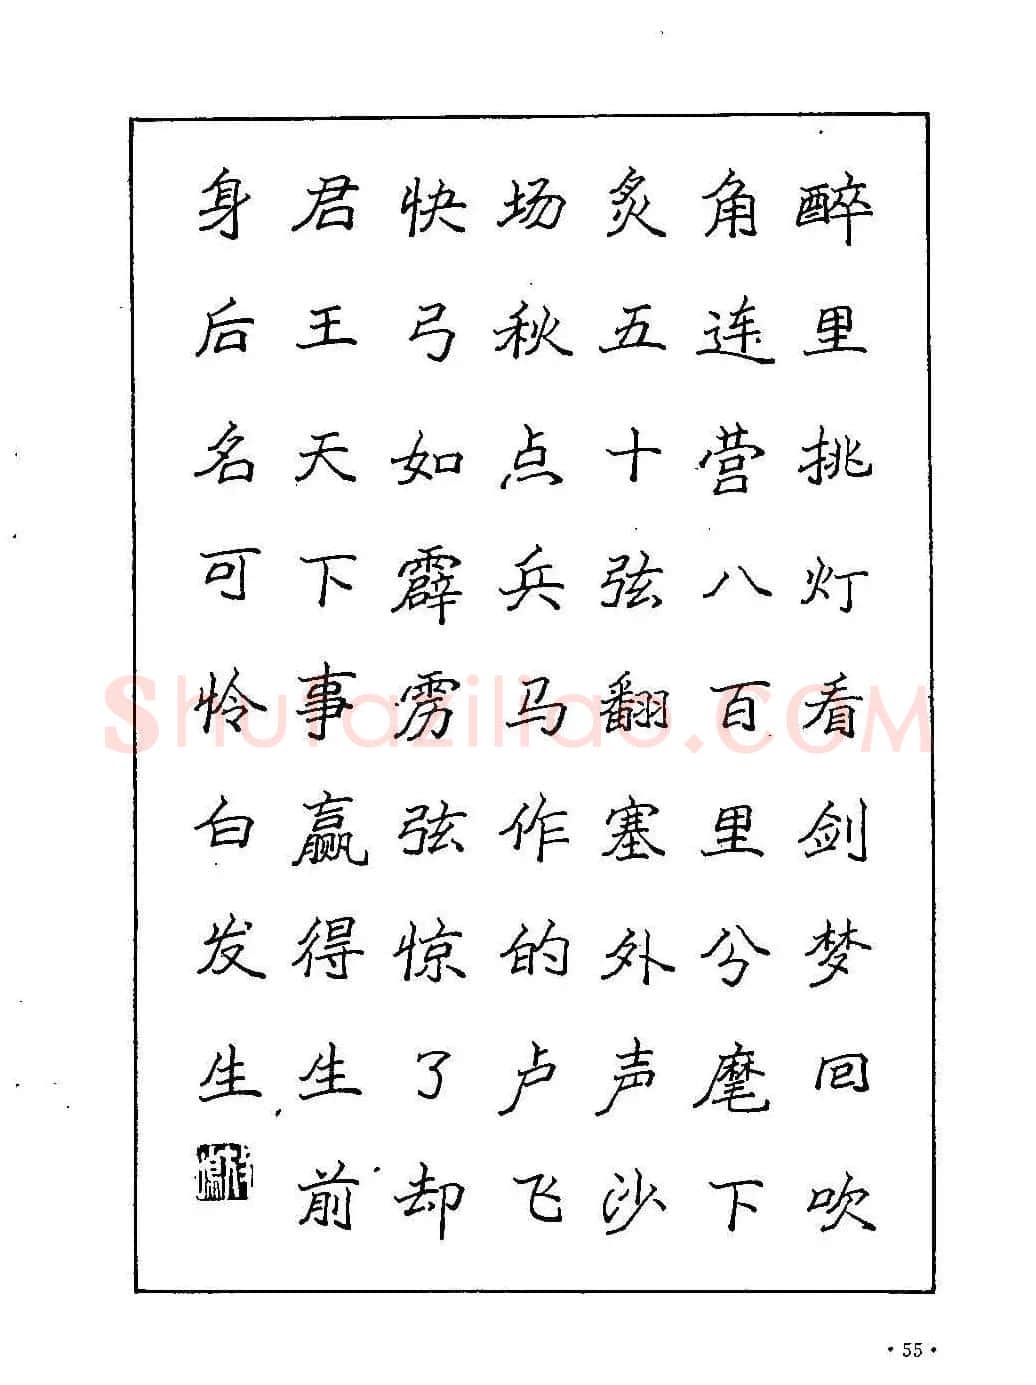 醉里挑灯看剑梦回吹
角连营八百里兮麾下
炙五十弦翻塞外声沙
场秋点兵马作的卢飞
快弓如霹雳弦惊了却
君王天下事赢得生前
身后名可怜白发生
Shufaziliao.COM
·55·